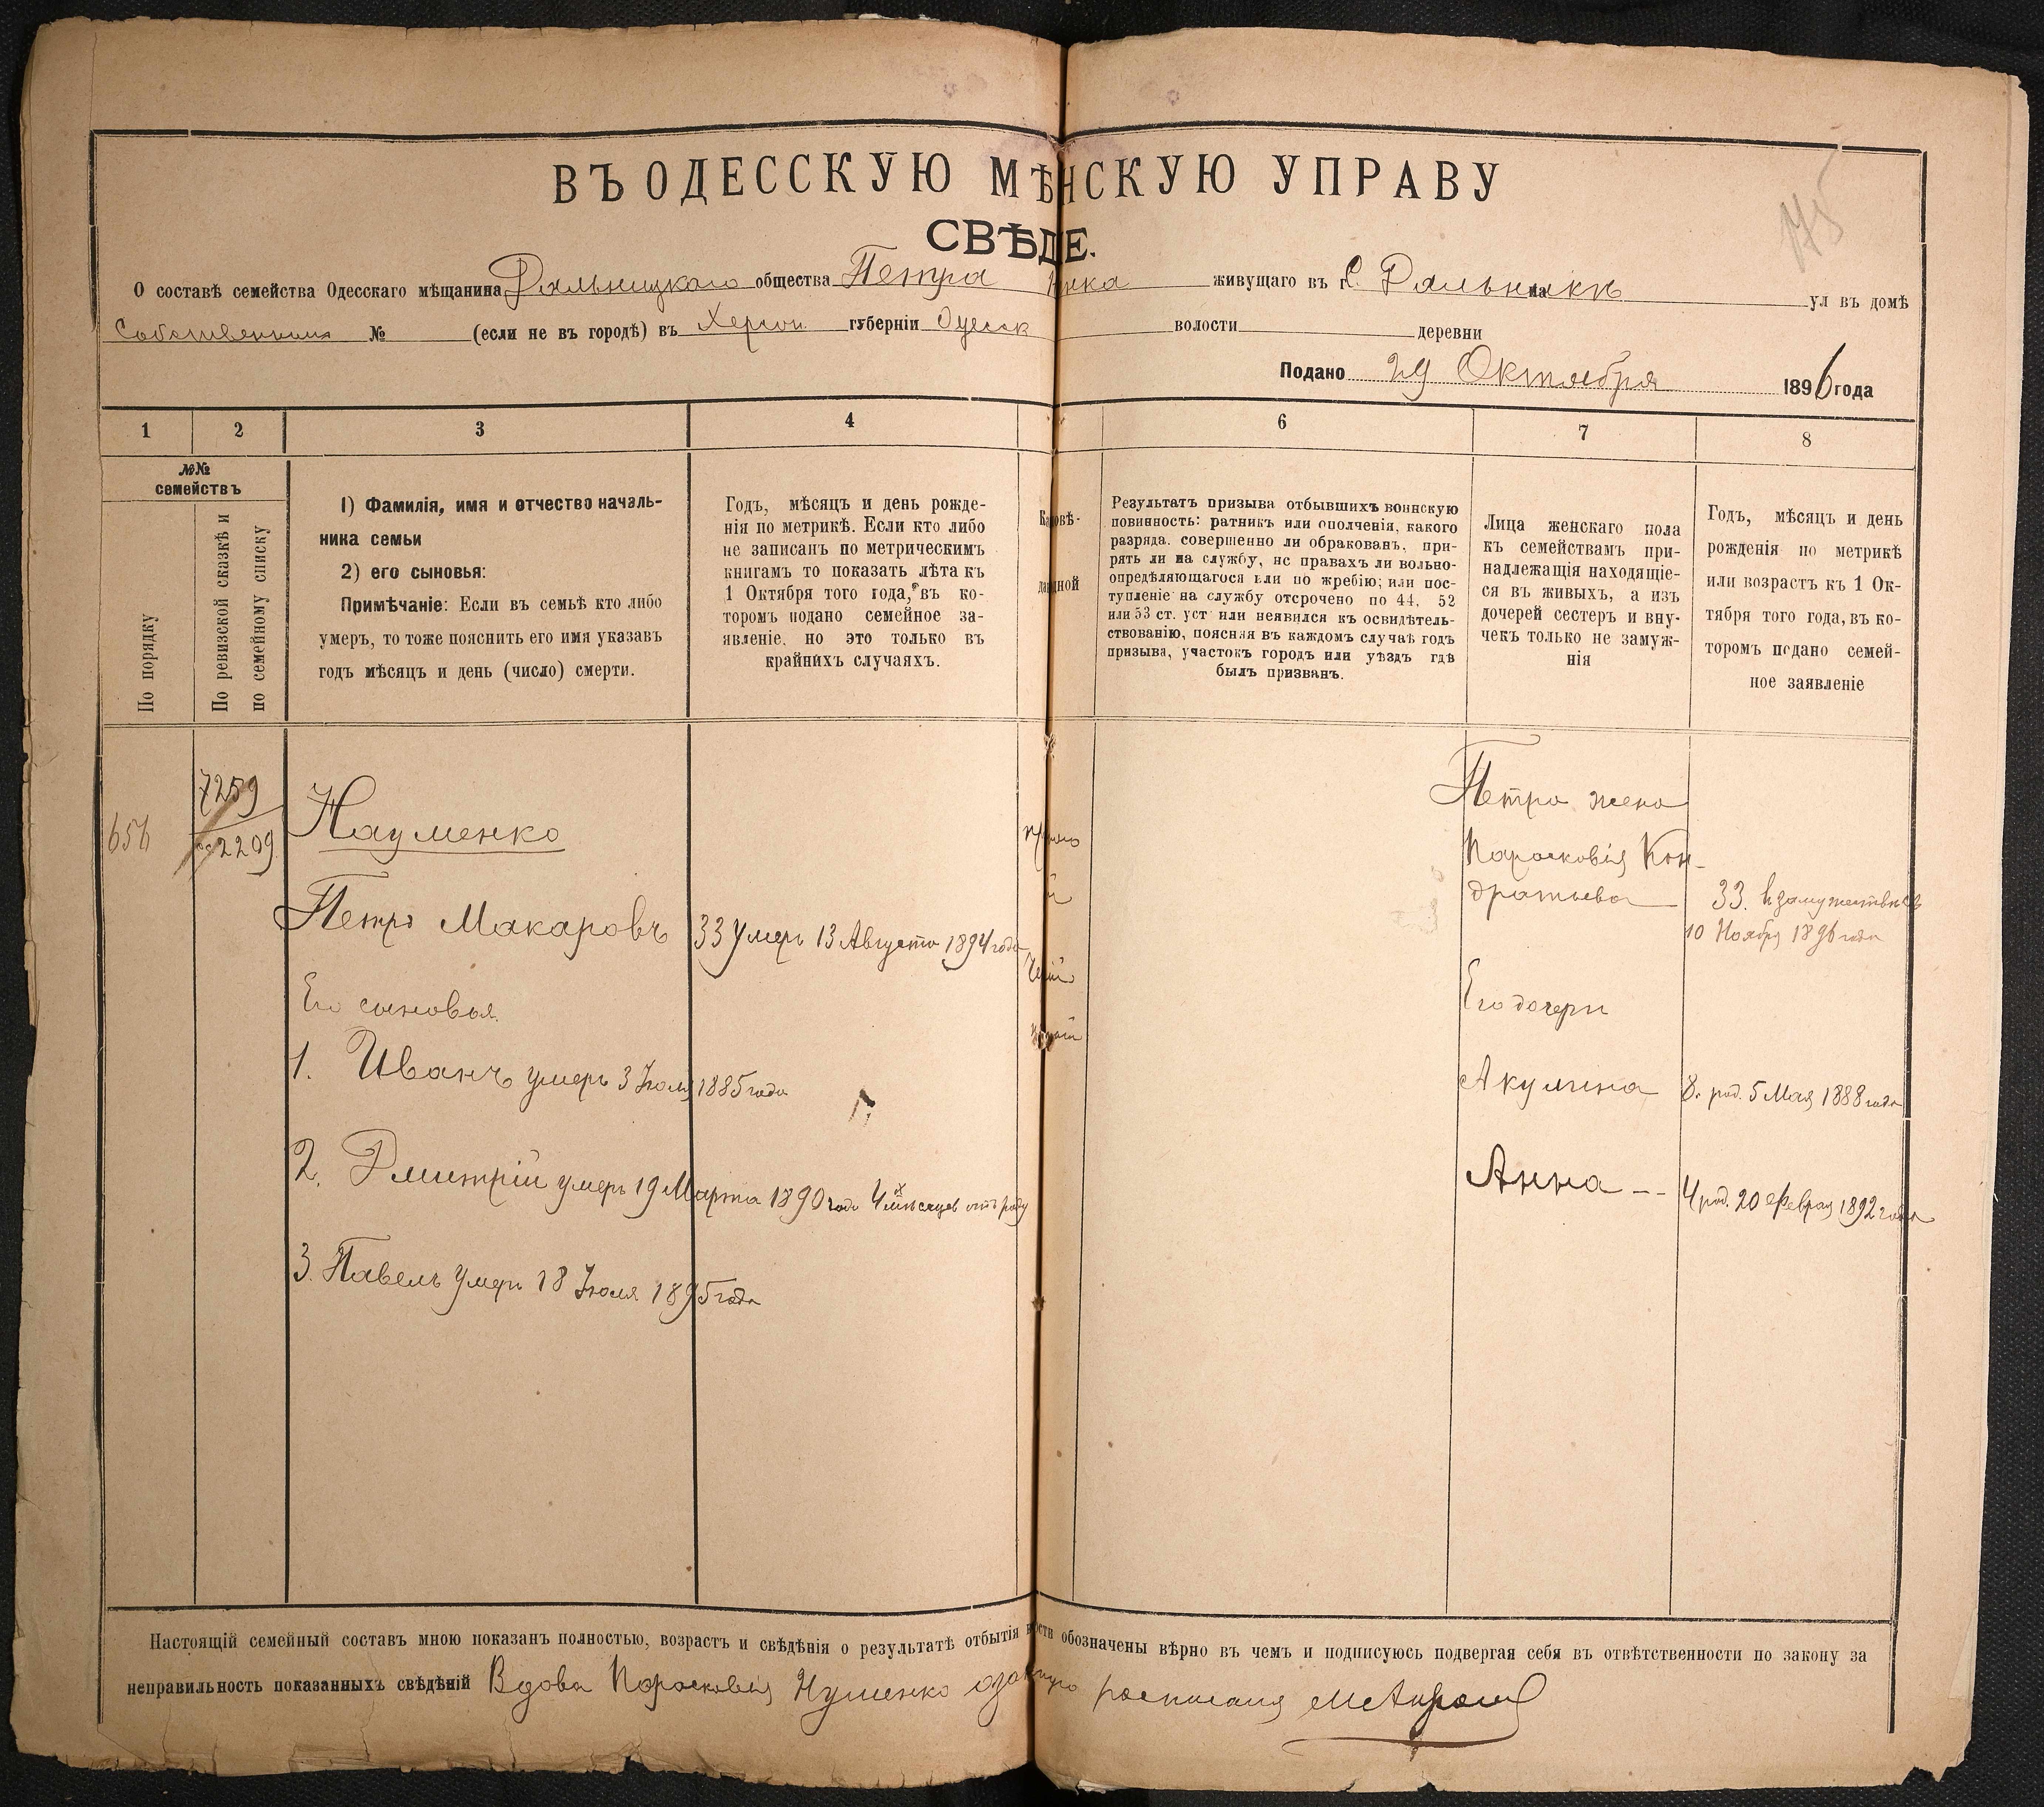 ВЪ ОДЕССКУЮ МѢ НСКУЮ УПРАВУ
СВѢДЕ.
175
О составѣ семейства Одесскаго мѣщанина Дальницкаго общества Петра нка живущаго въ г. С. Дальникъ на ул въ домѣ
Собственномъ № (если не въ городѣ) въ Херсон губерніи Одесск волости деревни
Подано 29 Октября 1896 года
1 2 3 4 6 7 8
№№
семействъ
По порядку
По ревизской сказкѣ и
по семейному списку
1) Фамилія, имя и отчество началь-
ника семьи
2) его сыновья:
Примѣчаніе: Если въ семьѣ кто либо
умеръ, то тоже пояснить его имя указавъ
годъ мѣсяцъ и день (число) смерти.
Годъ, мѣсяцъ и день рожде-
нія по метрикѣ. Если кто либо
не записанъ по метрическимъ
книгамъ то показать лѣта къ
1 Октября того года, въ ко-
торомъ подано семейное за-
явленіе, но это только въ
крайнихъ случаяхъ.
Результатъ призыва отбывшихъ воинскую
повинность: ратникъ или ополченія, какого
разряда. совершенно ли обракованъ, при-
рять ли на службу, нс правахъ ли вольно-
опредѣляющагося или по жребію; или пос-
тупленіе на службу отсрочено по 44, 52
или 53 ст. уст или неявился къ освидѣтель-
ствованію, поясняя въ каждомъ случаѣ годъ
призыва, участокъ городъ или уѣздъ гдѣ
былъ призванъ.
Лица женскаго пола
къ семействамъ при-
надлежащія находящіе-
ся въ живыхъ, а изъ
дочерей сестеръ и вну-
чекъ только не замуж-
нія
Годъ, мѣсяцъ и день
рожденія по метрикѣ
или возрастъ къ 1 Ок-
тября того года, въ ко-
торомъ подано семей-
ное заявленіе
656
7259
2209
Науменко
Петръ Макаровъ 33 умеръ 13 Августа 1894 года
Его сыновья.
1. Иванъ умеръ 3 Іюля 1885 года
2. Дмитрій умеръ 19 Марта 1890 года 4х мѣсяцев отъ роду
3. Павелъ умеръ 18 Іюля 1895 года
Петра жена
Парасковія Кон-
дратьева 33. в замужествѣ с
10 Ноября 1896 года
Его дочери
Акулина 8. род. 5 Мая 1888 года
Анна -- 4 род. 20 Февраля 1892 года
Настоящій семейный составъ мною показанъ полностью, возрастъ и свѣдѣнія о результатѣ отбытія ности обозначены вѣрно въ чемъ и подписуюсь подвергая себя въ отвѣтственности по закону за
неправильность показанныхъ свѣдѣній Вдова Парасковія Нуменко росписался